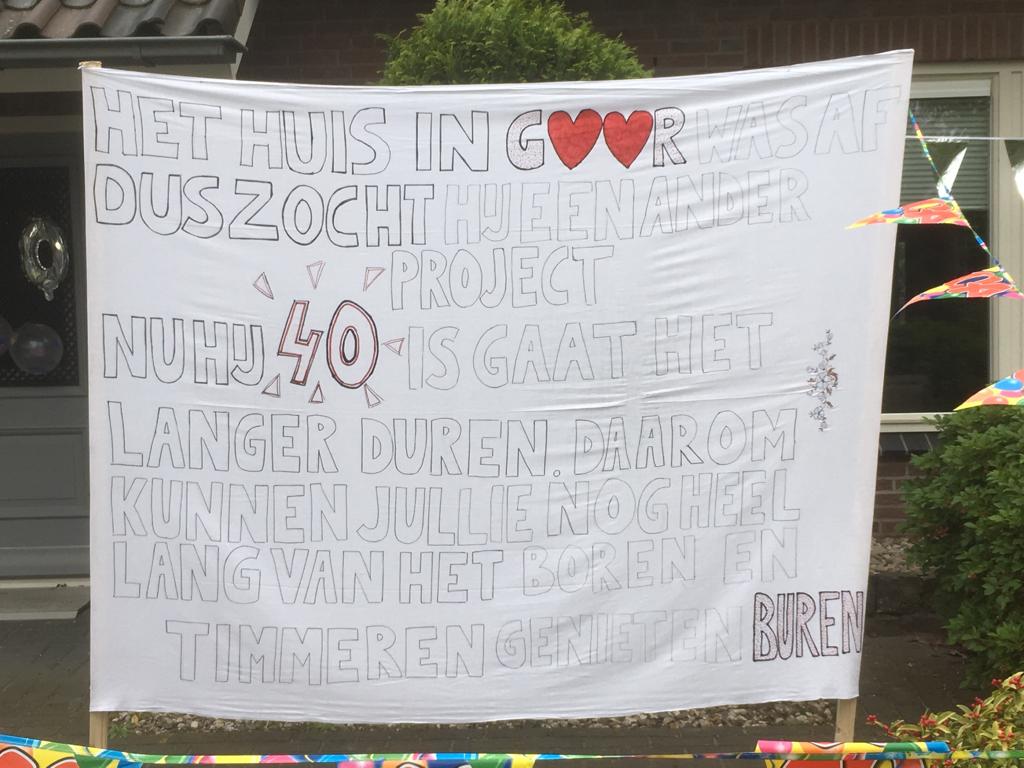 HET HUIS IN GOOR WAS AF
DUS ZOCHT HIJ EEN ANDER
PROJECT
NU HIJ 40 IS GAAT HET
LANGER DUREN. DAAROM
KUNNEN JULLIE NOG HEEL
LANG VAN HET BOREN EN
TIMMEREN GENIETEN BUREN